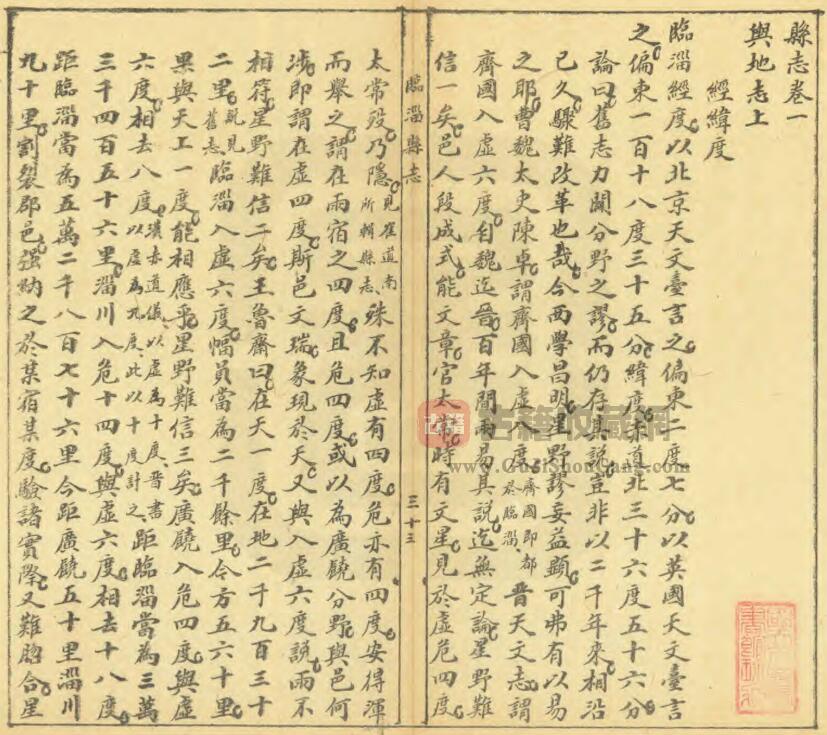 縣志卷一
輿地志上
經緯度
臨淄經度以北京天文臺言之偏東二度七分以英國天文臺言
之偏東一百十八度三十五分緯度赤道北三十六度五十六分
論曰舊志力闢分野之謬而仍存其說豈非以二千年來相沿
已久驟難改革也哉今西學昌明星野謬妄益顯可弗有以易
之耶曹魏太史陳卓謂齊國入虛八度齊國即都於臨淄晉天文志謂
齊國入虛六度自魏迄晉百年間兩易其說迄無定論星野難
信一矣邑人段成式能文章官太常時有文星見於虛危四度
臨淄縣志
三十三
太常歿乃隱見崔道南所輯縣志殊不知虛有四度危亦有四度安得渾
而舉之謂在兩宿之四度且危四度或以為廣饒分野與邑何
涉即謂在虛四度斯邑文瑞象現於天又與入虛六度說兩不
相符星野難信二矣王魯齋曰在天一度在地二千九百三十
二里說見舊志臨淄入虛六度幅員當為二千餘里今方五六十里
果與天工一度能相應乎星野難信三矣廣饒入危四度與虛
六度相去八度漢赤道儀以虛為十度晉書以虛為九度此以十度計之距臨淄當為三萬
三千四百五十六里淄川入危十四度與虛六度相去十八度
距臨淄當為五萬二千八百七十六里今距廣饒五十里淄川
九十里割裂郡邑強納之於某宿某度驗諸實際又難脗合星
古籍收藏網
www.GuJiShouCang.com